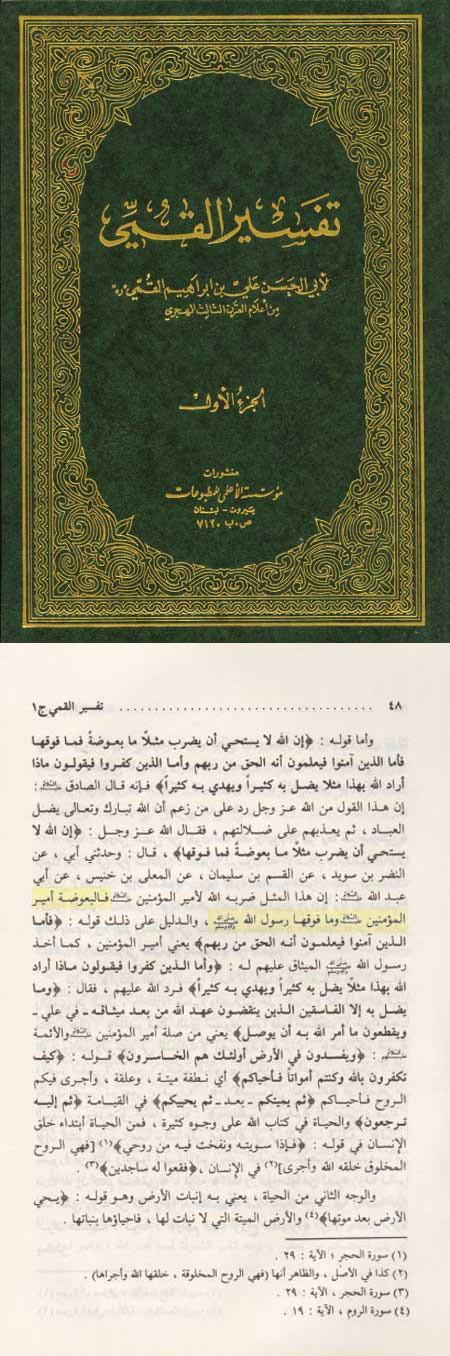 تفسير القمي
لأبي الحسن علي بن ابراهيم القمي «ره»
من أعلام القرن الثالث الهجري
الجزء الأول
منشورات
مؤسسة الأعلمي للمطبوعات
بيروت - لبنان
ص.ب ٧١٢٠
٤٨ ........................................ تفسير القمي ج١
وأما قوله : ﴿إن الله لا يستحي أن يضرب مثلاً ما بعوضة فما فوقها
فأما الذين آمنوا فيعلمون أنه الحق من ربهم وأما الذين كفروا فيقولون ماذا
أراد الله بهذا مثلا يضل به كثيراً ويهدي به كثيراً﴾ فإنه قال الصادق :
إن هذا القول من الله عز وجل رد على من زعم أن الله تبارك وتعالى يضل
العباد ، ثم يعذبهم على ضلالتهم ، فقال الله عز وجل : ﴿إن الله لا
يستحي أن يضرب مثلا ما بعوضة فما فوقها﴾ ، قال : وحدثني أبي ، عن
النضر بن سويد ، عن القسم بن سليمان ، عن المعلى بن خنيس ، عن أبي
عبد الله : إن هذا المثل ضربه الله لأمير المؤمنين فالبعوضة أمير
المؤمنين وما فوقها رسول الله ، والدليل على ذلك قوله : ﴿فأما
الذين آمنوا فيعلمون أنه الحق من ربهم﴾ يعني أمير المؤمنين ، كما أخذ
رسول الله الميثاق عليهم له : ﴿وأما الذين كفروا فيقولون ماذا أراد
الله بهذا مثلاً يضل به كثيراً ويهدي به كثيراً﴾ فرد الله عليهم ، فقال : ﴿وما
يضل به إلا الفاسقين الذين ينقضون عهد الله من بعد ميثاقه - في علي -
ويقطعون ما أمر الله به أن يوصل﴾ يعني من صلة أمير المؤمنين والأئمة
: ﴿ويفسدون في الأرض أولئك هم الخاسرون﴾ قوله : ﴿كيف
تكفرون بالله وكنتم أمواتاً فأحياكم﴾ أي نطفة ميتة ، وعلقة ، وأجرى فيكم
الروح فأحياكم ﴿ثم يميتكم - بعد - ثم يحييكم﴾ في القيامة ﴿ثم إليه
ترجعون﴾ والحياة في كتاب الله على وجوه كثيرة ، فمن الحياة ابتداء خلق
الإنسان في قوله : ﴿فإذا سويته ونفخت فيه من روحي﴾(١) [فهي الروح
المخلوق خلقه الله وأجرى](٢) في الإنسان ، ﴿فقعوا له ساجدين﴾(٣) .
والوجه الثاني من الحياة ، يعني به إنبات الأرض وهو قوله : ﴿يحي
الأرض بعد موتها﴾(٤) والأرض الميتة التي لا نبات لها ، فاحياؤها بنباتها .
(١) سورة الحجر ؛ الآية : ٢٩ .
(٢) كذا في الأصل ، والظاهر أنها (فهي الروح المخلوقة ، خلقها الله وأجراها) .
(٣) سورة الحجر ، الآية : ٢٩ .
(٤) سورة الروم ، الآية : ١٩ .